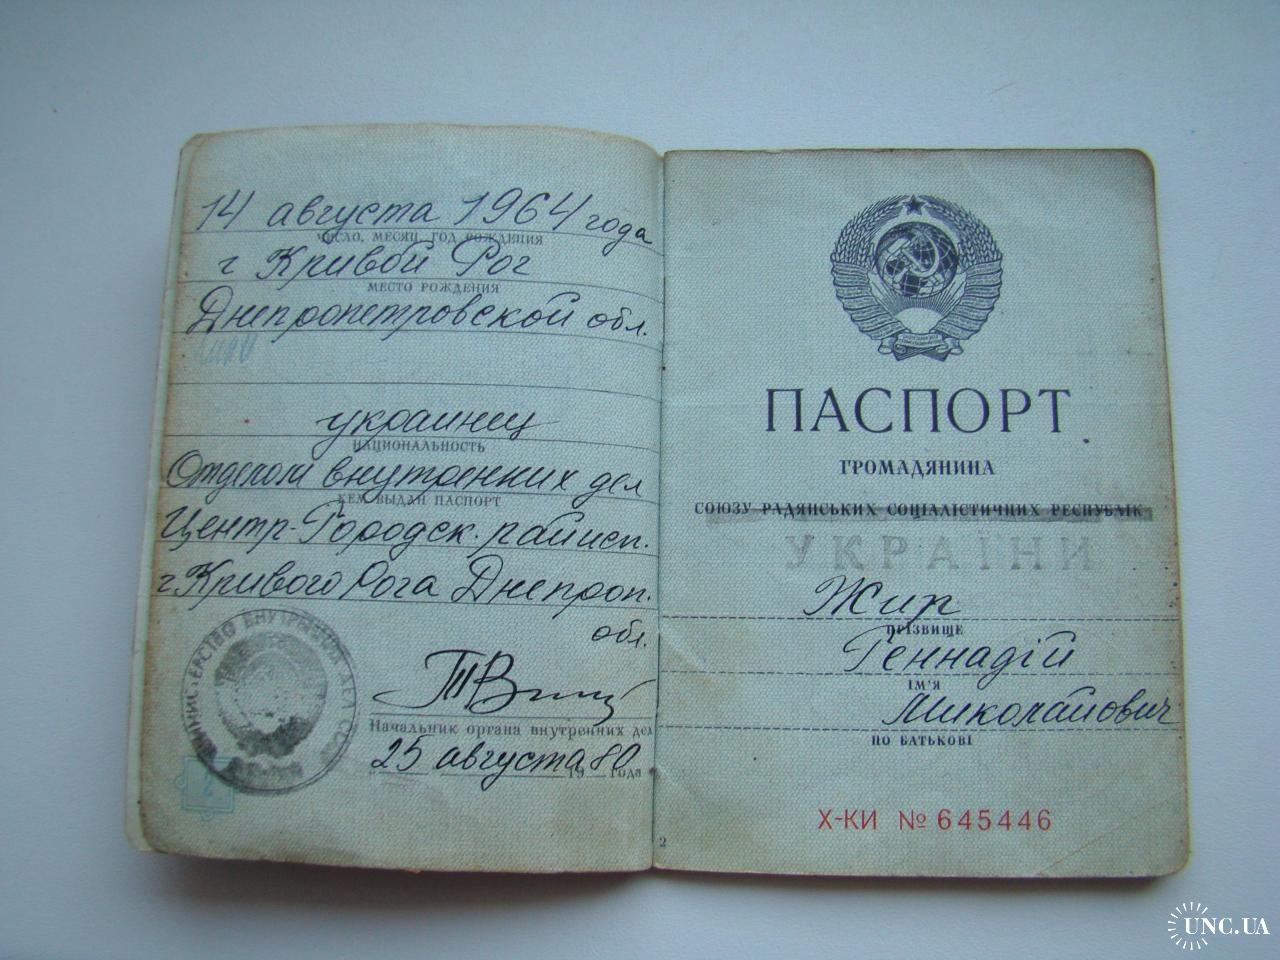 14 августа 1964 года
ЧИСЛО, МЕСЯЦ, ГОД РОЖДЕНИЯ
г Кривой Рог
МЕСТО РОЖДЕНИЯ
Днепропетровской обл.
украинец
НАЦИОНАЛЬНОСТЬ
Отделом внутренних дел
КЕМ ВЫДАН ПАСПОРТ
Центр-Городск. райисп.
г. Кривого Рога Днепроп.
обл.
МИНИСТЕРСТВО ВНУТРЕННИХ ДЕЛ СССР
Начальник органа внутренних дел
"25" августа 1980 года
2
ПАСПОРТ
ГРОМАДЯНИНА
СОЮЗУ РАДЯНСЬКИХ СОЦІАЛІСТИЧНИХ РЕСПУБЛІК
УКРАЇНИ
Жир
ПРІЗВИЩЕ
Геннадій
ІМ'Я
Миколайович
ПО БАТЬКОВІ
X-КИ № 645446
UNC.UA